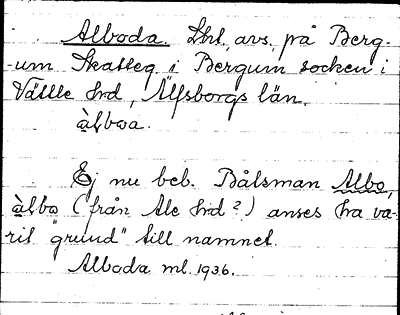 Alboda. Lht, avs. på Berg-
-um Skatteg. i Bergum socken i
Vättle hrd, Älfsborgs län.
àlbωa.
Ej nu beb. Båtsman Albo,
àlbω (från Ale hrd?) anses ha va-
rit "grund" till namnet.
Alboda ml. 1936.